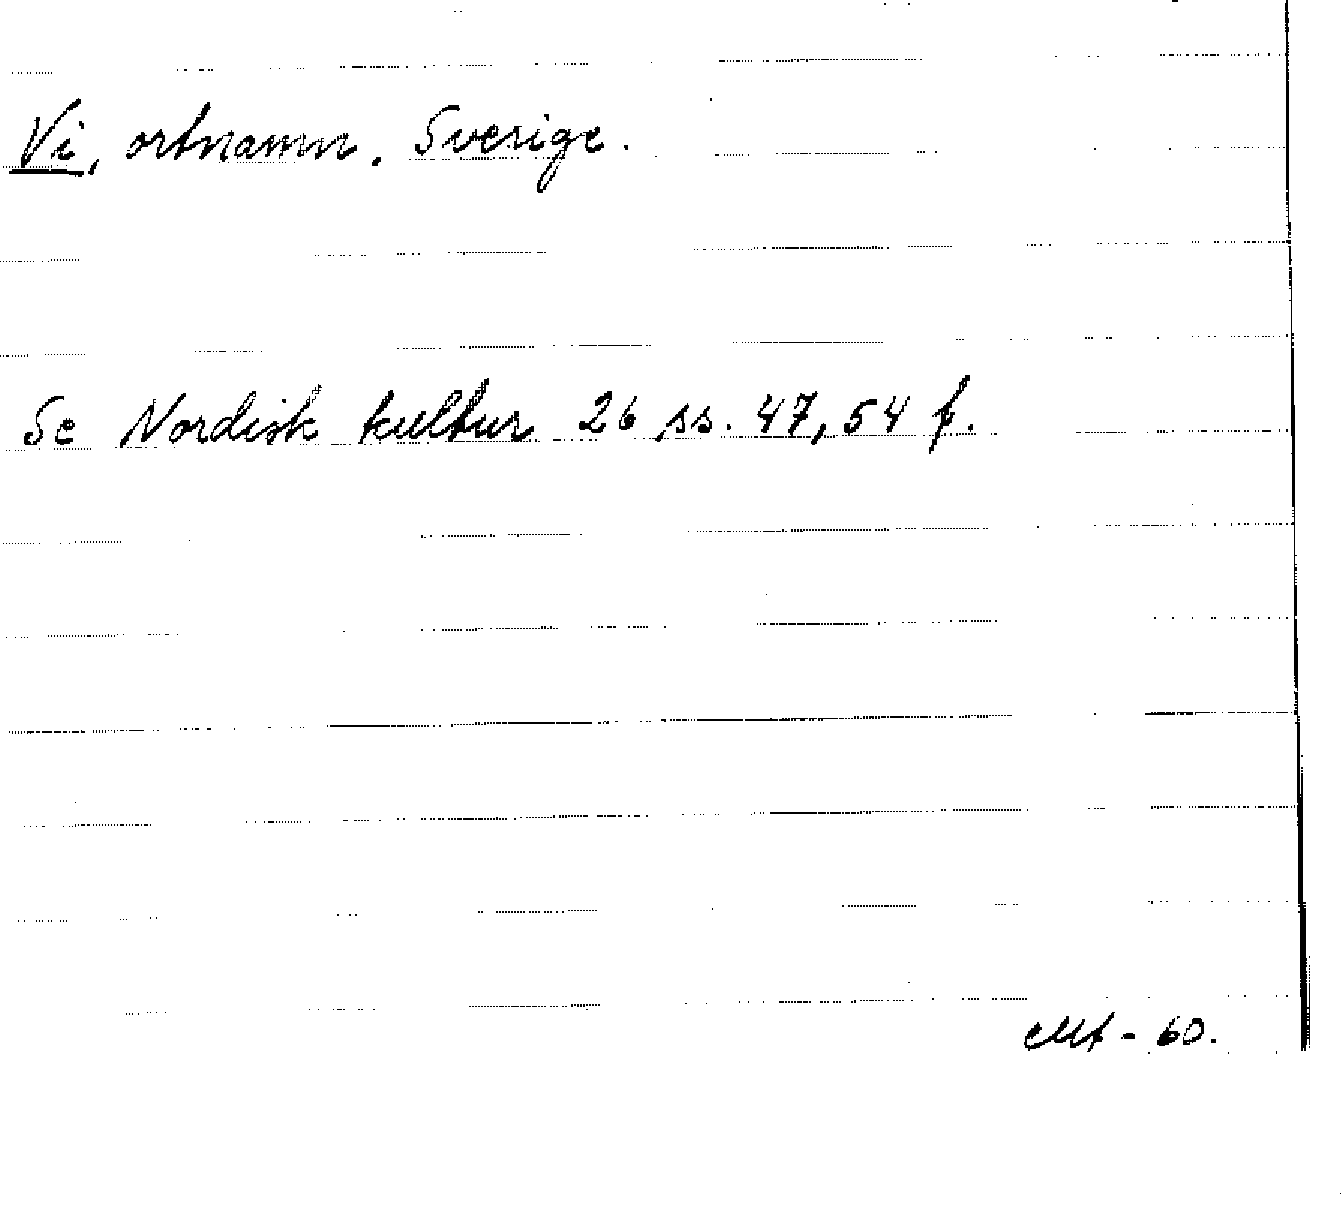 Vi, ortnamn. Sverige.
Se Nordisk kultur 26 ss. 47, 54 f.
- 60.